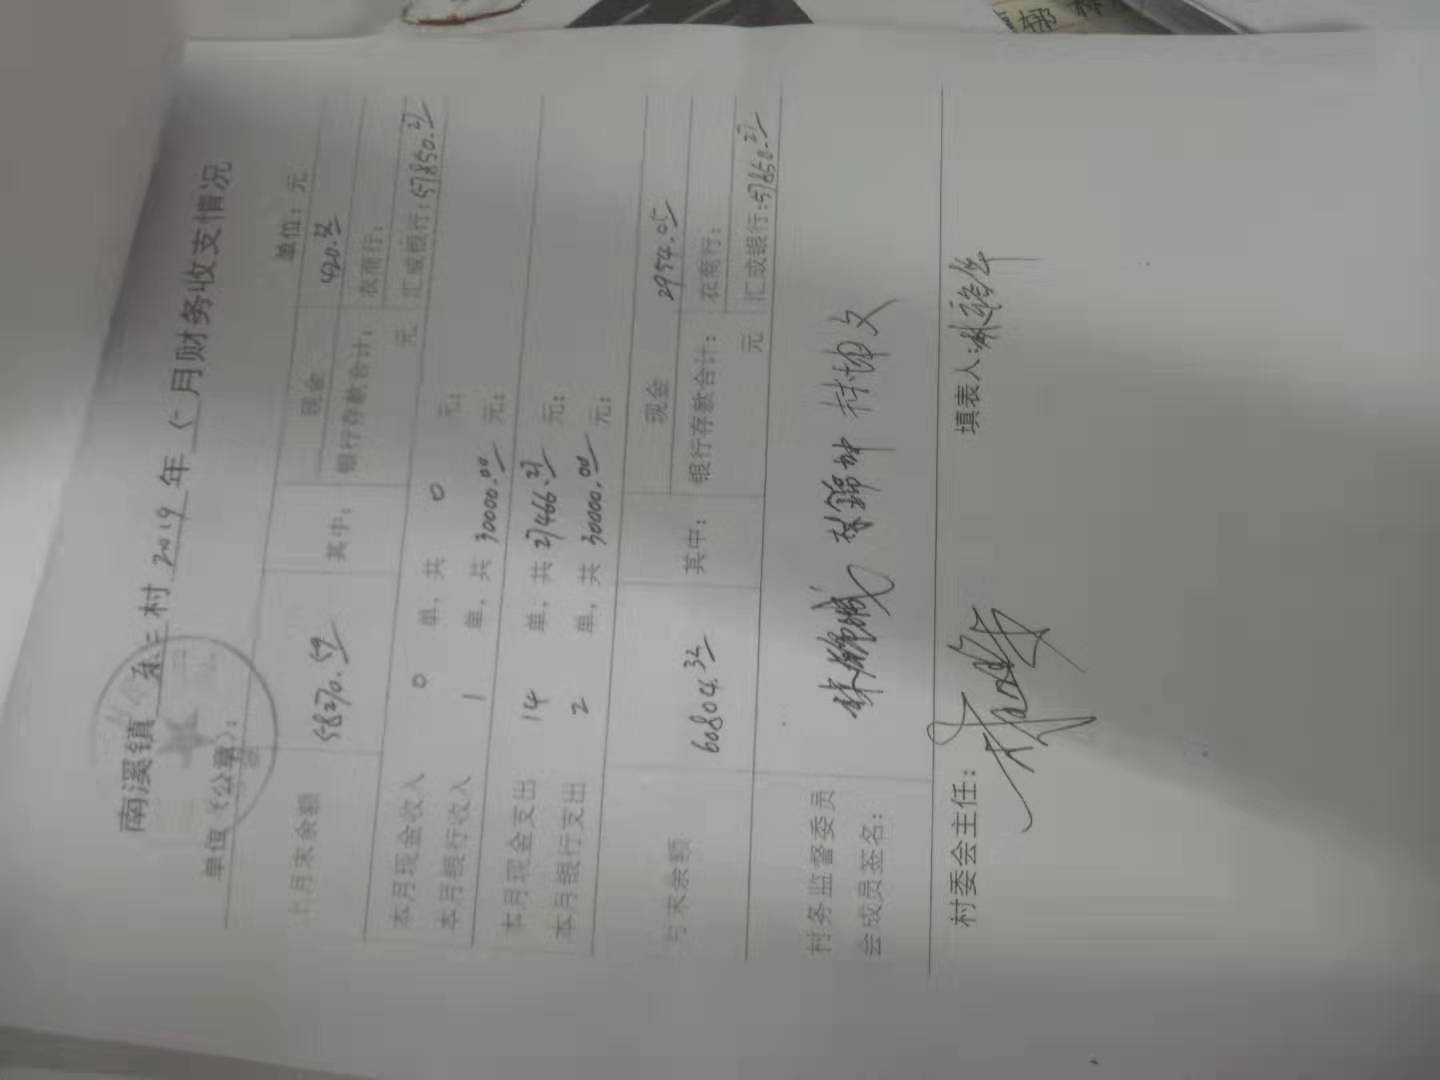 南溪镇 东二 村 2019 年 月财务收支情况
单位(公章): 单位:元
上月末余额 58270.59 其中: 现金 420.32
银行存款合计: 元 农商行:
汇成银行:57850.27
本月现金收入 0 单,共 0 元;
本月银行收入 1 单,共 30000.00 元;
本月现金支出 14 单,共 27466.27 元;
本月银行支出 2 单,共 30000.00 元;
月末余额 60804.32 其中: 现金 2954.05
银行存款合计: 元 农商行:
汇成银行:57850.27
村务监督委员
会成员签名:
村委会主任: 填表人: